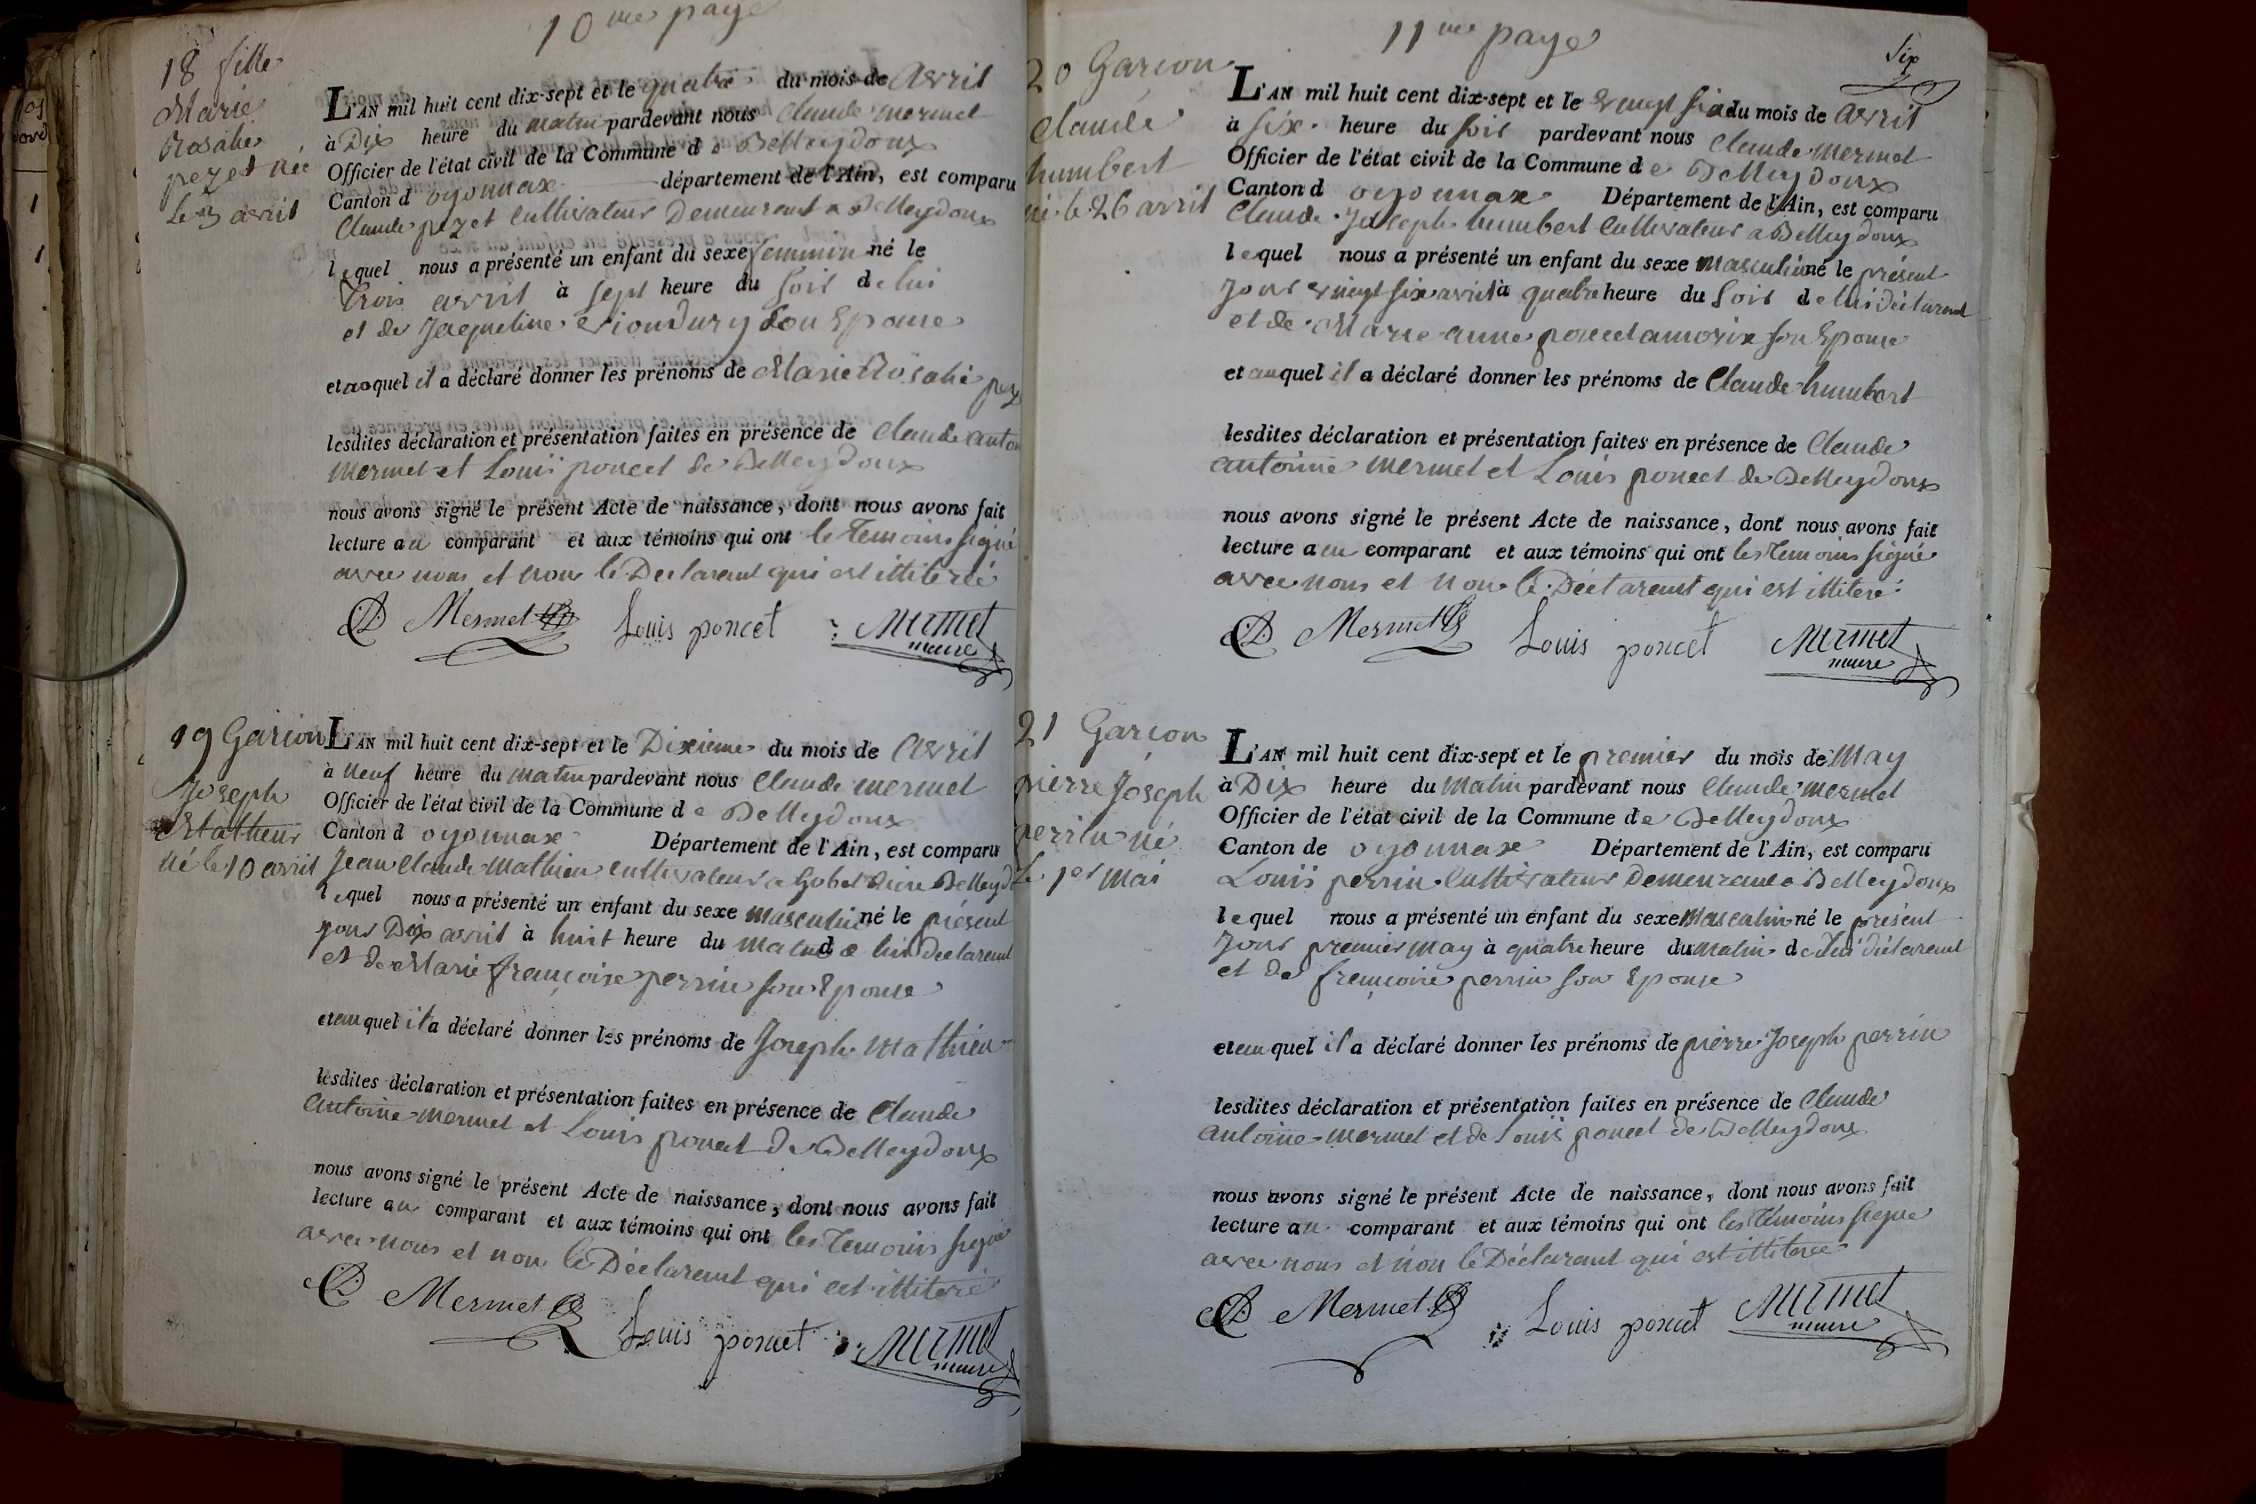 10me page
18 fille
Marie
Rosalie
pezet née
le 3 avril
L'AN mil huit cent dix-sept et le quatre du mois de avril
à Dix heure du matin pardevant nous Claude mermet
Officier de l'état civil de la Commune de Belleydoux
Canton d oyonnax département de l'Ain, est comparu
Claude pezet Cultivateur Demeurant a Belleydoux
lequel nous a présenté un enfant du sexe femmin né le
trois avril à sept heure du soir de lui
et de Jaqueline son Epouse
et auquel il a déclaré donner les prénoms de Marie Rosalie pez
lesdites déclaration et présentation faites en présence de Claude anton
mermet et Louis poncet de Belleydoux
nous avons signé le présent Acte de naissance, dont nous avons fait
lecture au comparant et aux témoins qui ont le temoins signé
avec nous et non le Declarant qui est illiteré
Mermet Louis poncet Mermet
maire
19 Garçon
Joseph
Mathieu
né le 10 avril
L'AN mil huit cent dix-sept et le Dixieme du mois de avril
à neuf heure du matin pardevant nous Claude mermet
Officier de l'état civil de la Commune de Belleydoux
Canton d oyonnax Département de l'Ain, est comparu
Jean Claude Mathieu cultivateur a Belleyd
lequel nous a présenté un enfant du sexe masculin né le présent
jour Dix avril à huit heure du matin de lui declarant
et de Marie françoise perrin son Epouse
et auquel il a déclaré donner les prénoms de Joseph Mathieu
lesdites déclaration et présentation faites en présence de Claude
antoine mermet et Louis poncet de Belleydoux
nous avons signé le présent Acte de naissance, dont nous avons fait
lecture au comparant et aux témoins qui ont les temoins signé
avec nous et non le Déclarant qui est illiteré
Mermet Louis poncet Mermet
maire
11me page
Six
20 Garçon
Claude
humbert
né le 26 avril
L'AN mil huit cent dix-sept et le vingt six du mois de avril
à six heure du soir pardevant nous Claude mermet
Officier de l'état civil de la Commune de Belleydoux
Canton d oyonnax Département de l'Ain, est comparu
Claude Joseph humbert Cultivateur a Belleydoux
lequel nous a présenté un enfant du sexe masculin né le présent
jour vingt six avril à quatre heure du soir de lui déclarant
et de Marie anne poncet amorix son Epouse
et auquel il a déclaré donner les prénoms de Claude humbert
lesdites déclaration et présentation faites en présence de Claude
antoine mermet et Louis poncet de Belleydoux
nous avons signé le présent Acte de naissance, dont nous avons fait
lecture au comparant et aux témoins qui ont les temoins signé
avec nous et non le Déclarant qui est illiteré
Mermet Louis poncet Mermet
maire
21 Garçon
pierre Joseph
perrin né
le 1er mai
L'AN mil huit cent dix-sept et le premier du mois de May
à Dix heure du Matin pardevant nous Claude mermet
Officier de l'état civil de la Commune de Belleydoux
Canton de oyonnax Département de l'Ain, est comparu
Louis perrin Cultivateur Demeurant a Belleydoux
lequel nous a présenté un enfant du sexe masculin né le présent
Jour premier may à quatre heure du matin de lui déclarant
et de françoise perrin son Epouse
et auquel il a déclaré donner les prénoms de pierre Joseph perrin
lesdites déclaration et présentation faites en présence de Claude
antoine mermet et de Louis poncet de Belleydoux
nous avons signé le présent Acte de naissance, dont nous avons fait
lecture au comparant et aux témoins qui ont les témoins signé
avec nous et non le Déclarant qui est illiteré
Mermet Louis poncet Mermet
maire